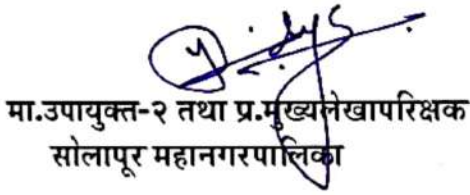 मा.उपायुक्त-२ तथा प्र.मुख्यलेखापरिक्षक
सोलापूर महानगरपालिका